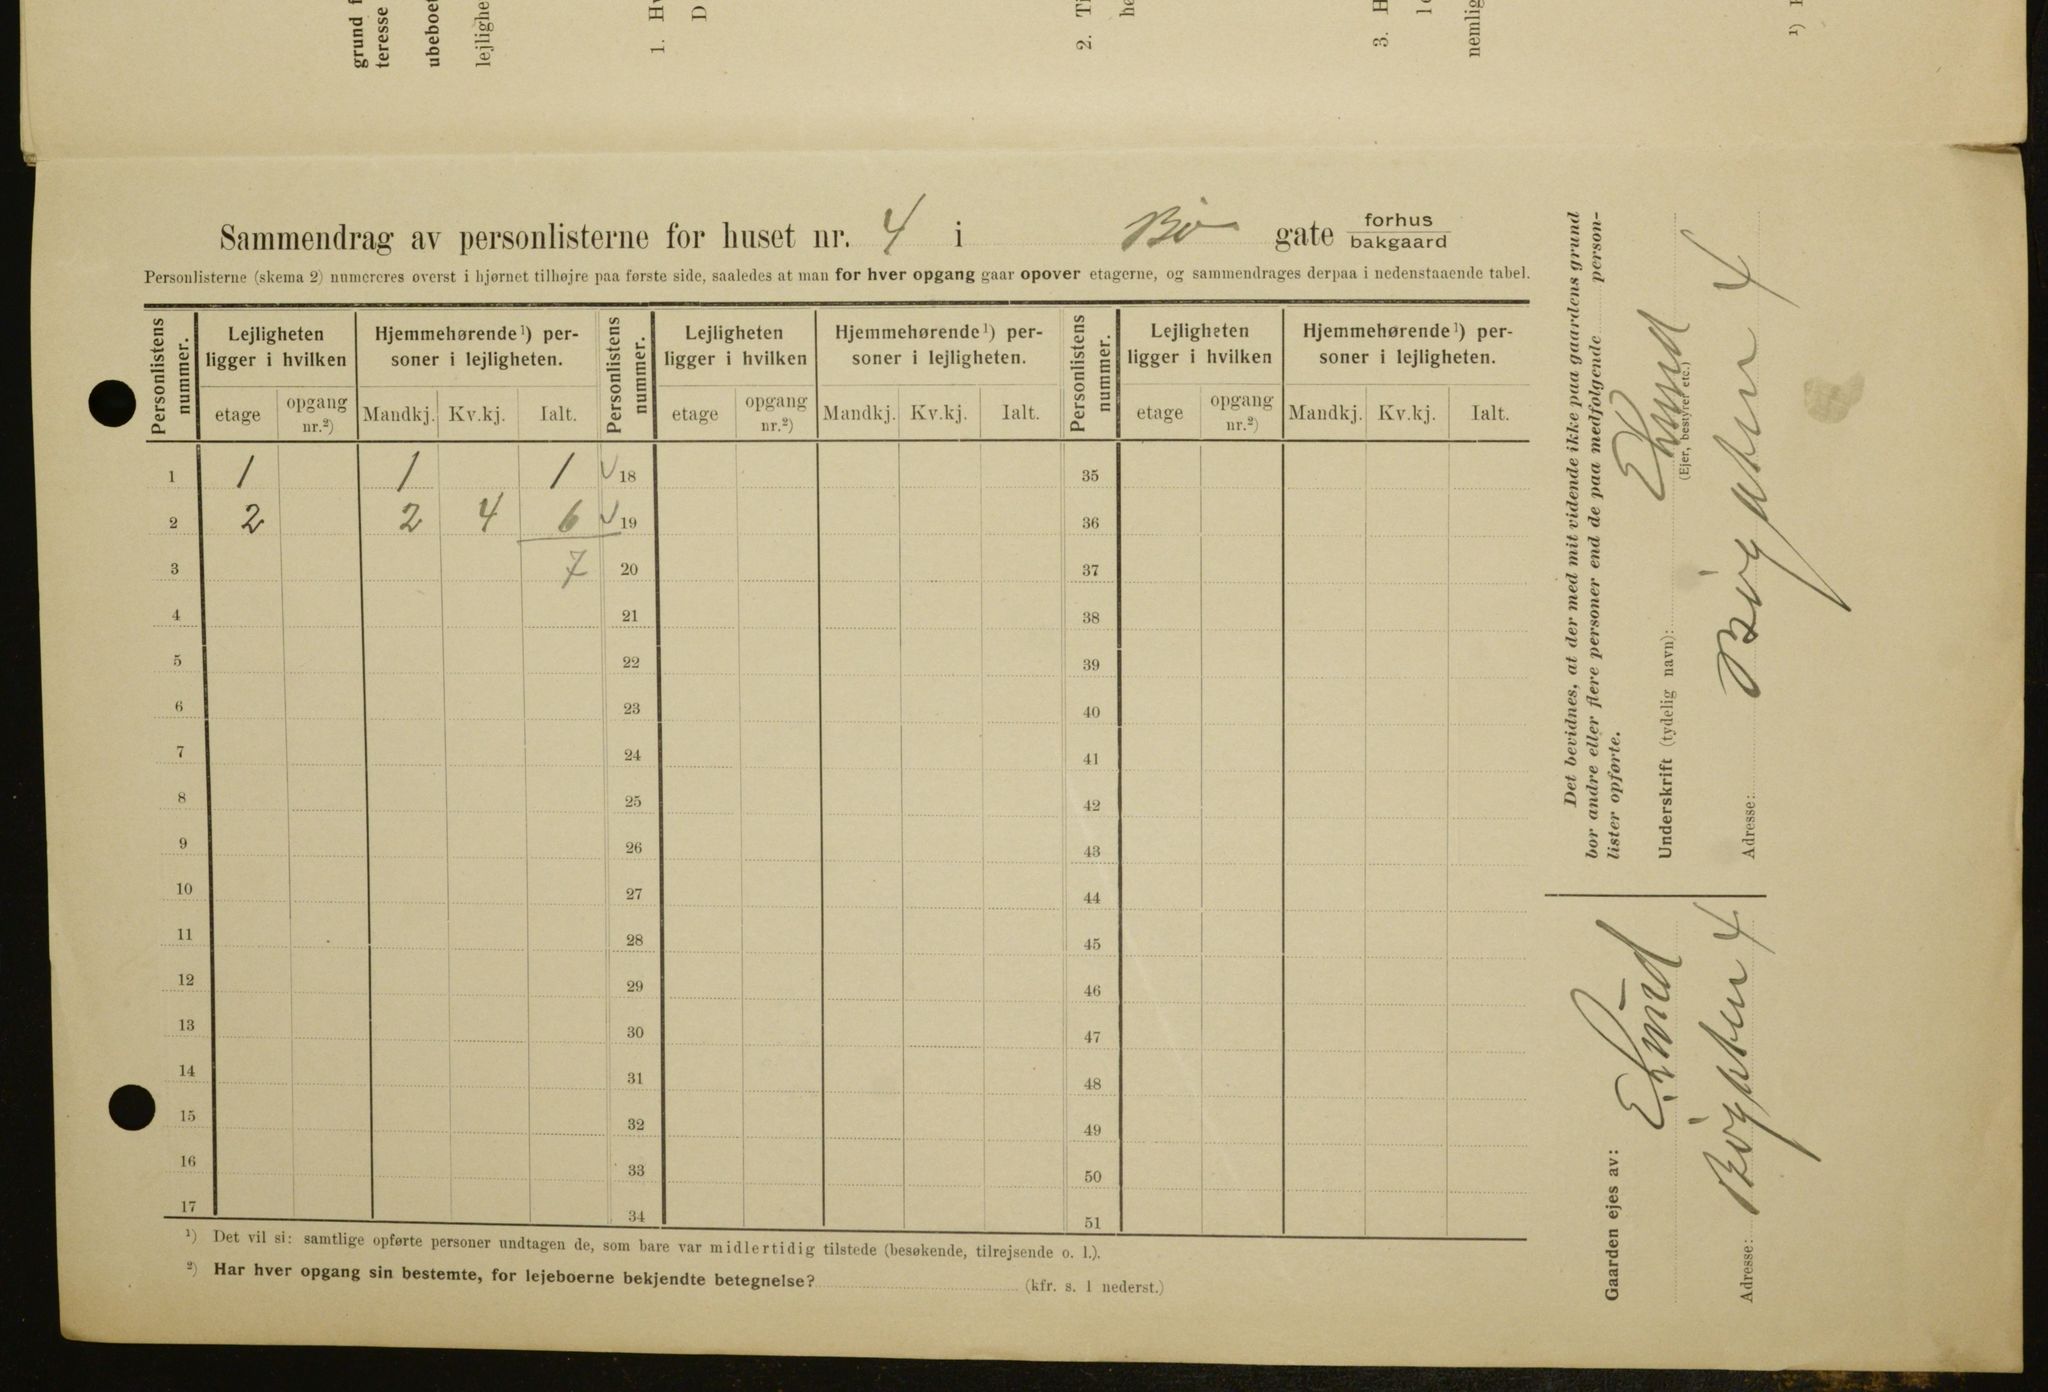 grund f
teresse
ubeboet
lejlighe
1. Hv
D
2. Ti
he
3. H
le
nemlig
¹)
Sammendrag av personlisterne for huset nr. 4 i Bö gate forhus
bakgaard
Personlisterne (skema 2) numereres øverst i hjørnet tilhøjre paa første side, saaledes at man for hver opgang gaar opover etagerne, og sammendrages derpaa i nedenstaaende tabel.
Personlistens nummer. Lejligheten ligger i hvilken Hjemmehørende¹) personer i lejligheten. Personlistens nummer. Lejligheten ligger i hvilken Hjemmehørende¹) personer i lejligheten. Personlistens nummer. Lejligheten ligger i hvilken Hjemmehørende¹) personer i lejligheten.
etage opgang nr.²) Mandkj. Kv.kj. Ialt. etage opgang nr.²) Mandkj. Kv.kj. Ialt. etage opgang nr.²) Mandkj. Kv.kj. Ialt.
1 1 1 1 18 35
2 2 2 4 6 19 36
3 7 20 37
4 21 38
5 22 39
6 23 40
7 24 41
8 25 42
9 26 43
10 27 44
11 28 45
12 29 46
13 30 47
14 31 48
15 32 49
16 33 50
17 34 51
¹) Det vil si: samtlige opførte personer undtagen de, som bare var midlertidig tilstede (besøkende, tilrejsende o. l.).
²) Har hver opgang sin bestemte, for lejeboerne bekjendte betegnelse? (kfr. s. 1 nederst.)
Det bevidnes, at der med mit vidende ikke paa gaardens grund
bor andre eller flere personer end de paa medfølgende person-
lister opførte.
Underskrift (tydelig navn):
(Ejer, bestyrer etc.)
Adresse: 4
Gaarden ejes av:
Adresse: 4